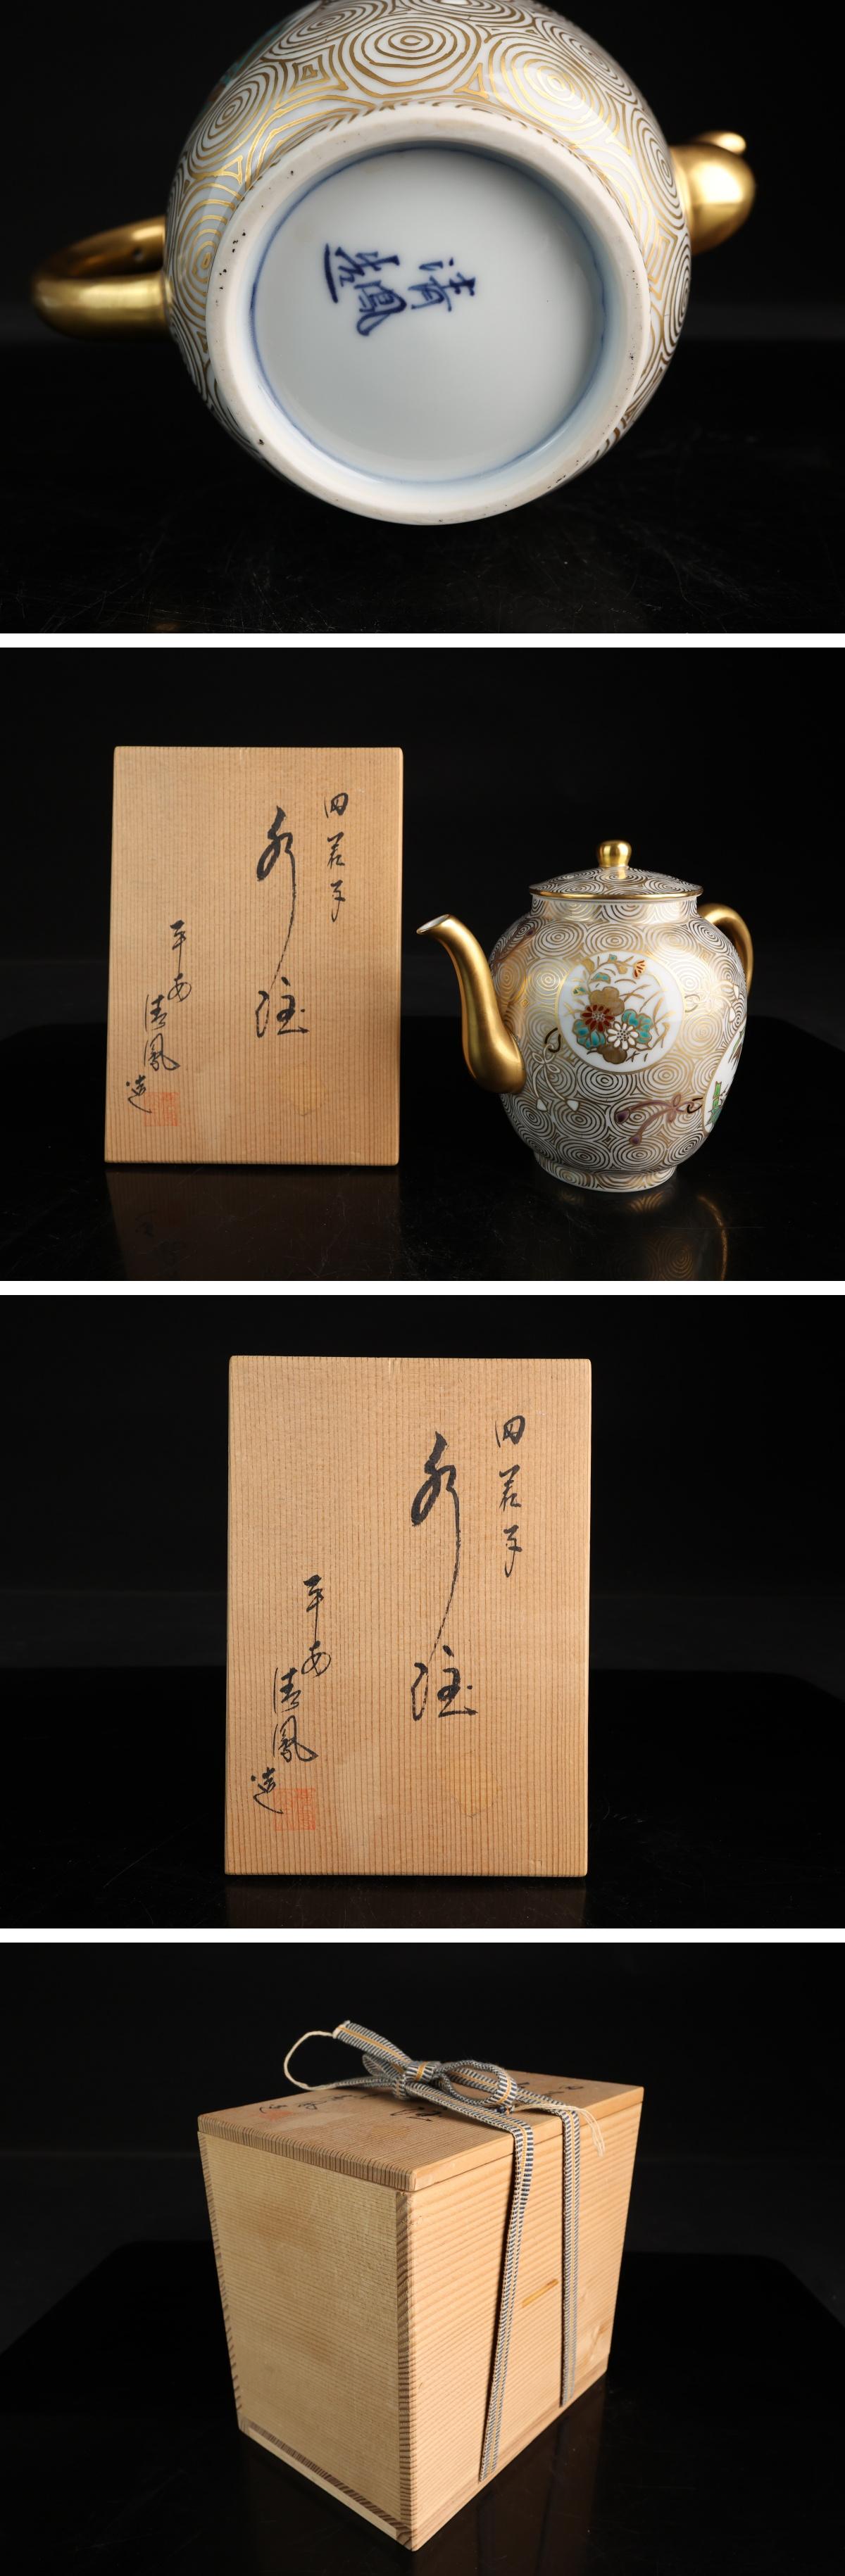 清鳳造
四君子
水注
平安
清鳳
造
四君子
水注
平安
清鳳
造